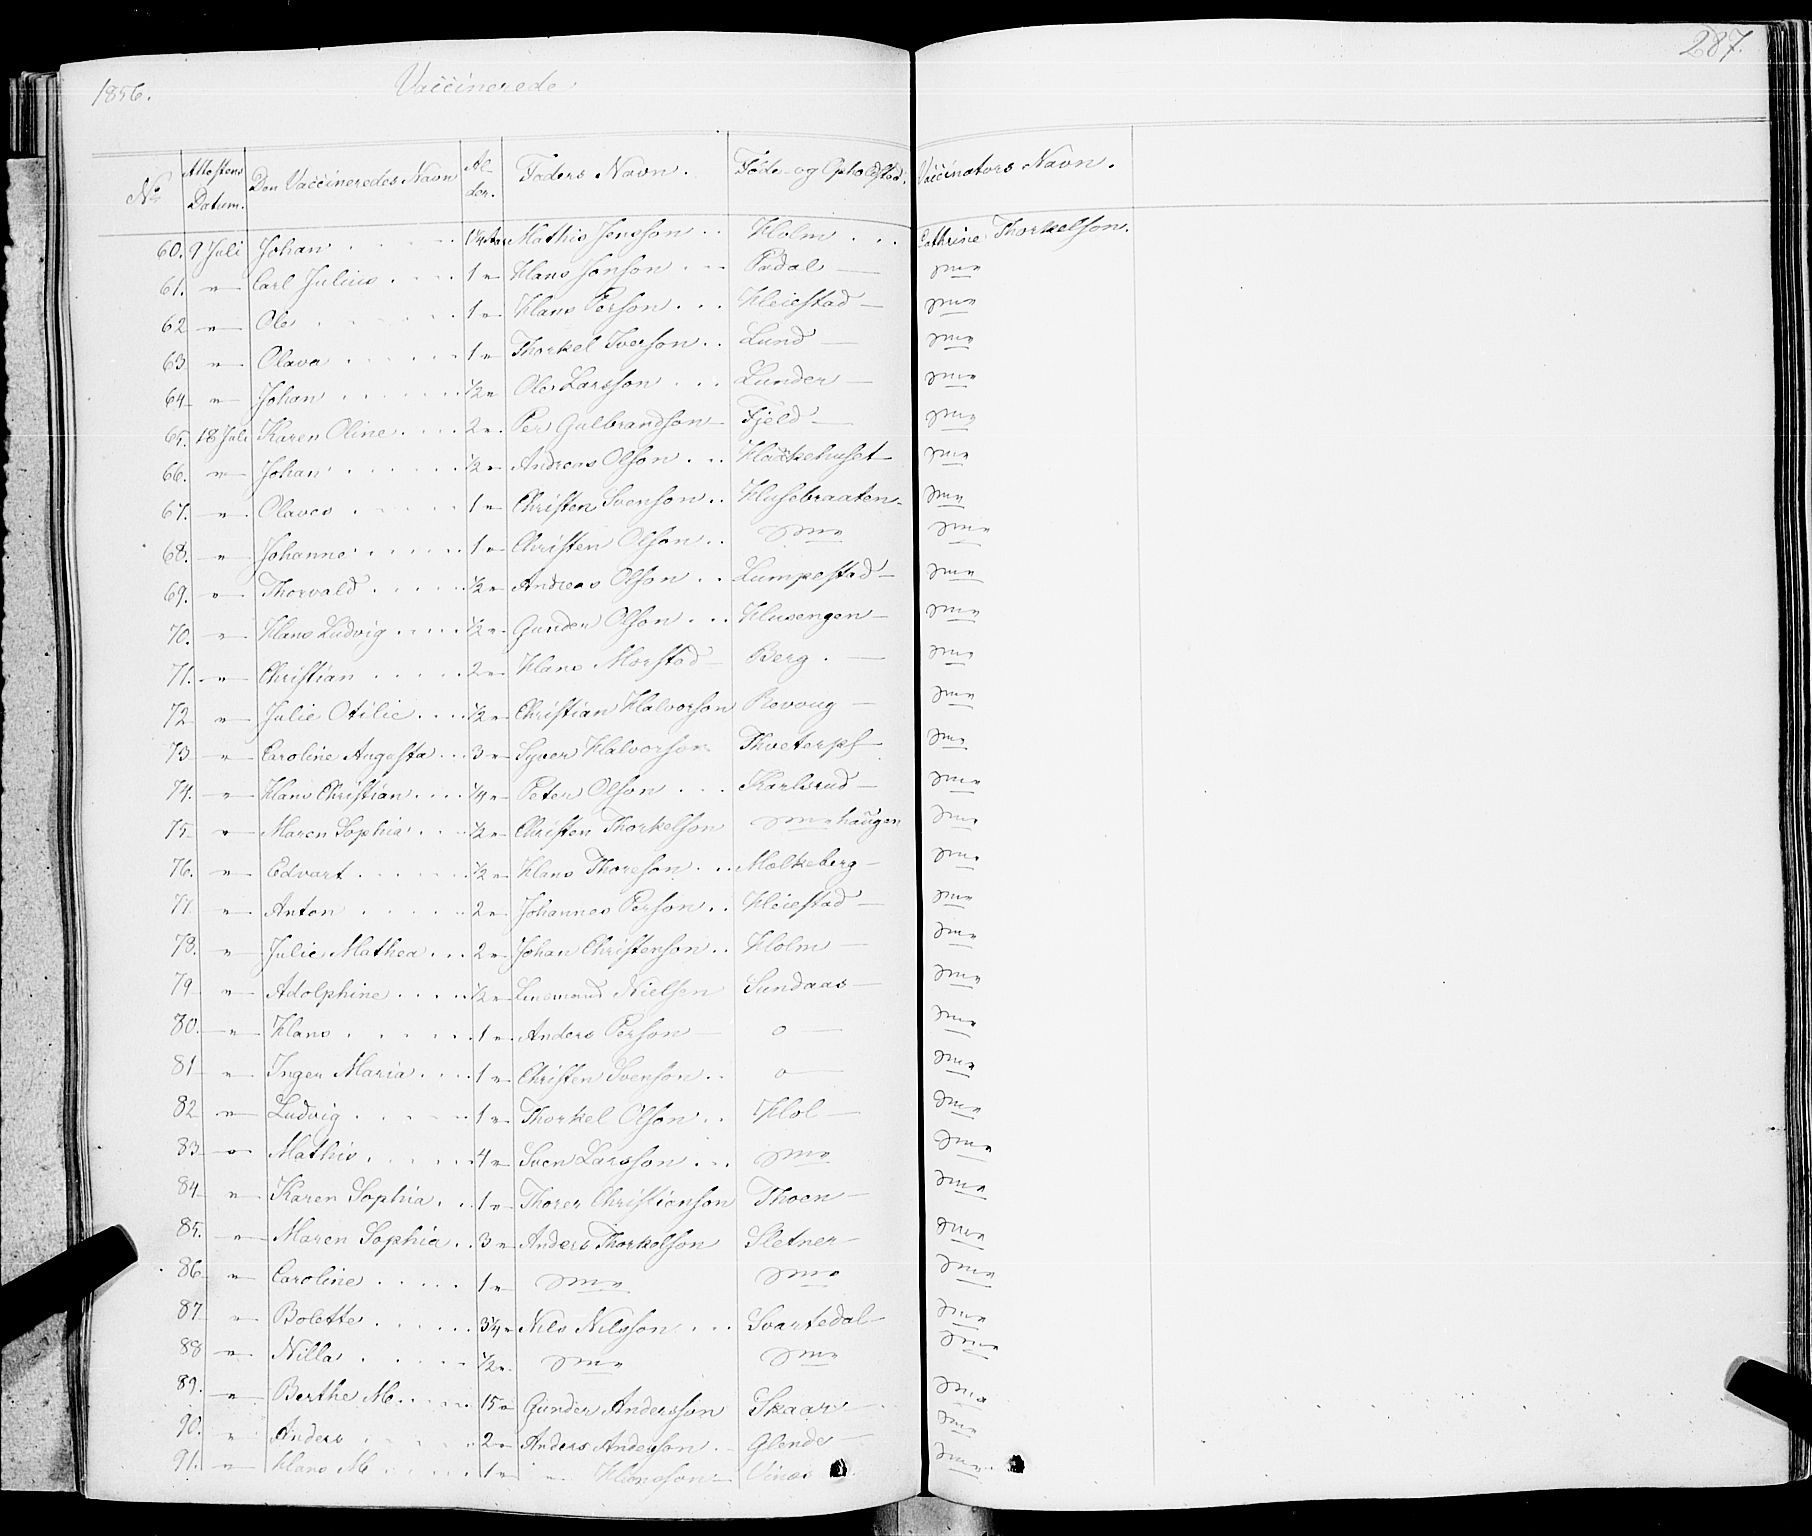 1856. Vaccinerede 287.
No Attestens Datum. Den Vaccineredes Navn Alder. Faders Navn. Føde- og Opholdsted. Vaccinators Navn.
60. 9 Juli Johan 1¼ Aar Mathis Jensson Holm Cathrine Thorkelson.
61. " Carl Julius 1 " Hans Jonson Pedal dmm
62 " Ole 1 " Hans Person Heiestad dmm
63 " Olava 1 " Thorkel Iverson Lund dmm
64 " Johan ½ " Ole Larsson Lunder dmm
65. 18 Juli Karen Oline 2 " Per Gulbrandson Fjeld dmm
66. " Johan ½ " Andreas Olson Hakkehuset dmm
67. " Olaves 1 " Christen Svenson Husebraaten dmm
68. " Johanne 1 " Christen Olson dmm dmm
69. " Thorvald ½ " Andreas Olson Lumpestad dmm
70. " Hans Ludvig ½ " Gunder Olson Husengen dmm
71. " Christian 2 " Hans Morstad Berg dmm
72 " Julie Otilie ½ " Christian Halvorson Revoug dmm
73 " Caroline Augusta 3 " Syver Halvorson Thveterpf dmm
74. " Hans Christian ¼ " Peter Olson Karlsrud dmm
75. " Maren Sophia ½ " Christen Thorkelson dmm haugen dmm
76. " Edvart ½ " Hans Thoreson Mølkeberg dmm
77 " Anton 2 " Johannes Person Heiestad dmm
78. " Julie Mathea 2 " Johan Christenson Holm dmm
79 " Adolphine ½ " Nielsen Sundaas dmm
80. " Hans 1 " Anders Person o dmm
81 " Inger Maria 1 " Christen Svenson o dmm
82 " Ludvig 1 " Thorkel Olson Hol dmm
83 " Mathis 4 " Sven Larsson dmm dmm
84 " Karen Sophia 1 " Thorer Christianson Thoen dmm
85. " Maren Sophia 3 " Anders Thorkelson Sletner dmm
86 " Caroline 1 " dmm dmm dmm
87 " Bolette 3¼ " Nils Nilsson Svartedal dmm
88 " Nilla ½ " dmm dmm dmm
89. " Berthe M. 15 " Gunder Andersson Skaar dmm
90. " Anders 2 " Anders Anderson Glende dmm
91. " Hans M 1 " " Hansson Vines dmm